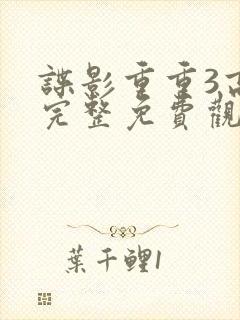 諜影重重3,高
完整免費觀
葉千鯉1